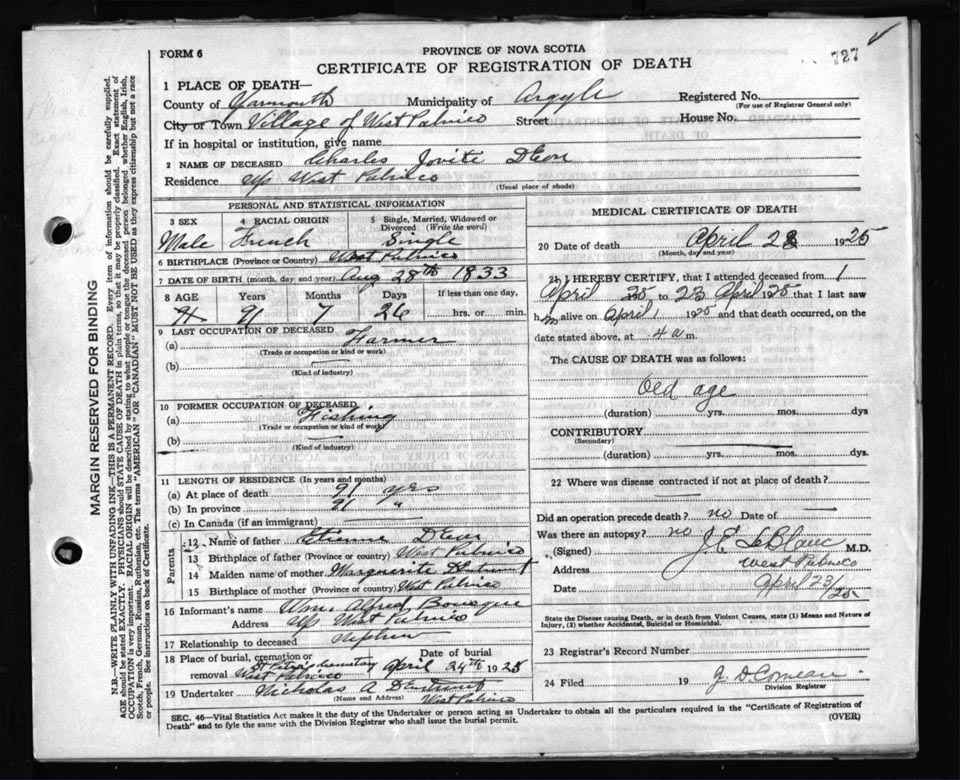 727
FORM 6
PROVINCE OF NOVA SCOTIA
CERTIFICATE OF REGISTRATION OF DEATH
1 PLACE OF DEATH—
County of Yarmouth Municipality of Argyle Registered No.
(For use of Registrar General only)
City or Town Village of West Pubnico Street House No.
If in hospital or institution, give name
2 NAME OF DECEASED Charles Jovite DEon
Residence Up West Pubnico
(Usual place of abode)
PERSONAL AND STATISTICAL INFORMATION
3 SEX Male
4 RACIAL ORIGIN French
5 Single, Married, Widowed or Divorced (Write the word) Single
6 BIRTHPLACE (Province or Country) West Pubnico
7 DATE OF BIRTH (month, day and year) Aug 28th 1833
8 AGE Years Months Days If less than one day,
91 7 26 hrs. or min.
9 LAST OCCUPATION OF DECEASED
(a) Farmer
(Trade or occupation or kind or work)
(b)
(Kind of industry)
10 FORMER OCCUPATION OF DECEASED
(a) Fishing
(Trade or occupation or kind of work)
(b)
(Kind of industry)
11 LENGTH OF RESIDENCE (In years and months)
(a) At place of death 91 yrs
(b) In province 91 "
(c) In Canada (if an immigrant)
Parents
12 Name of father Etienne DEon
13 Birthplace of father (Province or country) West Pubnico
14 Maiden name of mother Marguerite DEntremont
15 Birthplace of mother (Province or country) West Pubnico
16 Informant's name Wm. Alfred Bourque
Address Up West Pubnico
17 Relationship to deceased Nephew
18 Place of burial, cremation or removal Date of burial
West Pubnico April 24th 1925
19 Undertaker Nicholas A DEntremont
(Name and Address) West Pubnico
MEDICAL CERTIFICATE OF DEATH
20 Date of death April 23 1925
(Month, day and year)
21 I HEREBY CERTIFY, that I attended deceased from 1
April 25 to 23 April 1925 that I last saw
h m alive on April 1 1925 and that death occurred, on the
date stated above, at 4 a m.
The CAUSE OF DEATH was as follows:
Old age
(duration) yrs. mos. dys
CONTRIBUTORY
(Secondary)
(duration) yrs. mos. dys.
22 Where was disease contracted if not at place of death?
Did an operation precede death? no Date of
Was there an autopsy? no
(Signed) J. E. LeBlanc M.D.
Address West Pubnico
Date April 23/25
State the Disease causing Death, or in death from Violent Causes, state (1) Means and Nature of
Injury, (2) whether Accidental, Suicidal or Homicidal.
23 Registrar's Record Number
24 Filed 19 J. D Comeau
Division Registrar
SEC. 46—Vital Statistics Act makes it the duty of the Undertaker or person acting as Undertaker to obtain all the particulars required in the "Certificate of Registration of
Death" and to fyle the same with the Division Registrar who shall issue the burial permit.
(OVER)
MARGIN RESERVED FOR BINDING
N.B.—WRITE PLAINLY WITH UNFADING INK—THIS IS A PERMANENT RECORD. Every item of information should be carefully supplied.
AGE should be stated EXACTLY. PHYSICIANS should STATE CAUSE OF DEATH in plain terms, so that it may be properly classified. Exact statement of
OCCUPATION is very important. RACIAL ORIGIN will be described by stating to what people or tongue the deceased person belonged, whether English, Irish,
Scotch, French, German, Russian, Ruthenian, etc. The terms "AMERICAN" OR "CANADIAN" MUST NOT BE USED as they express citizenship but not a race
or people. See instructions on back of Certificate.